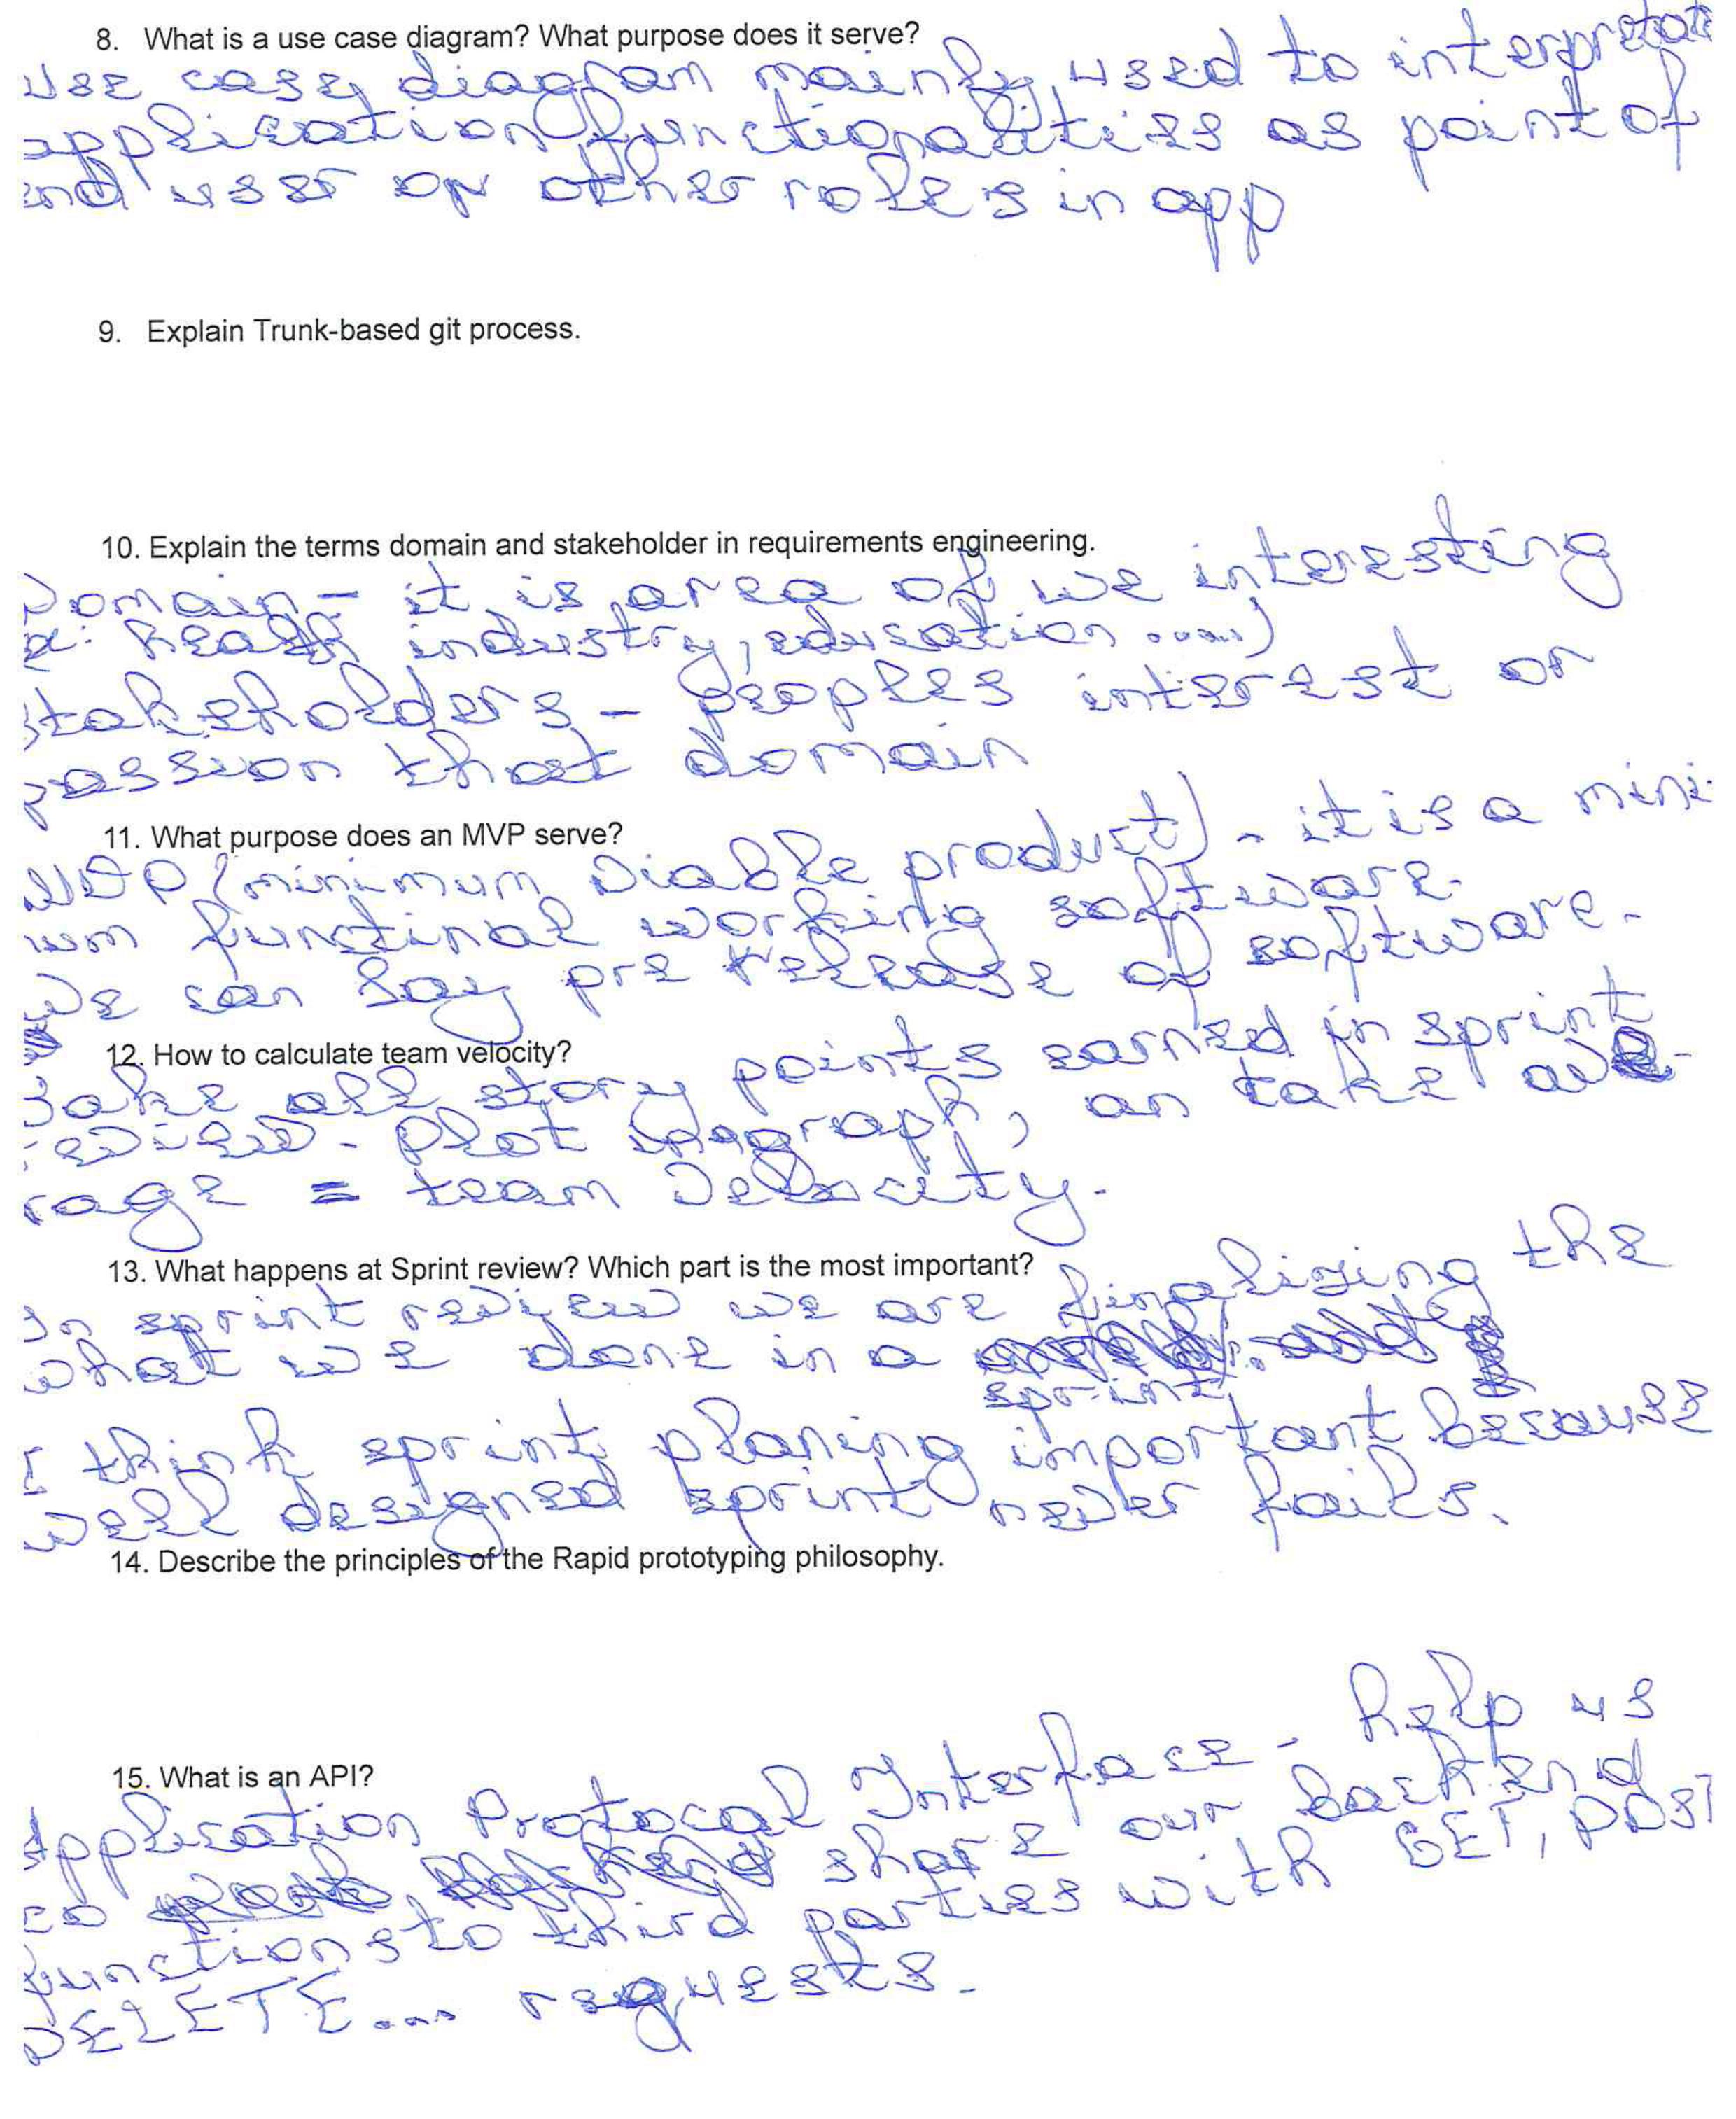 8. What is a use case diagram? What purpose does it serve?
Use case diagram mainly used to interpretate
application functionalities as point of
end user or other roles in app
9. Explain Trunk-based git process.
10. Explain the terms domain and stakeholder in requirements engineering.
Domain - it is area of we interesting
health industry, education ....)
stakeholders - peoples interest or
passion that domain
11. What purpose does an MVP serve?
MVP (minimum viable product) - it is a mini
mum functinal working software.
We can say pre release of software.
12. How to calculate team velocity?
Take all story points earned in sprint
review. Plot in graph, an take ave-
rage = team velocity.
13. What happens at Sprint review? Which part is the most important?
In sprint review we are finalizing the
what we done in a
sprint.
I think sprint planing important because
well designed sprint never fails.
14. Describe the principles of the Rapid prototyping philosophy.
15. What is an API?
Application Protocal Interface - help us
to share our backend
functions to third parties with GET, POST
DELETE... requests.